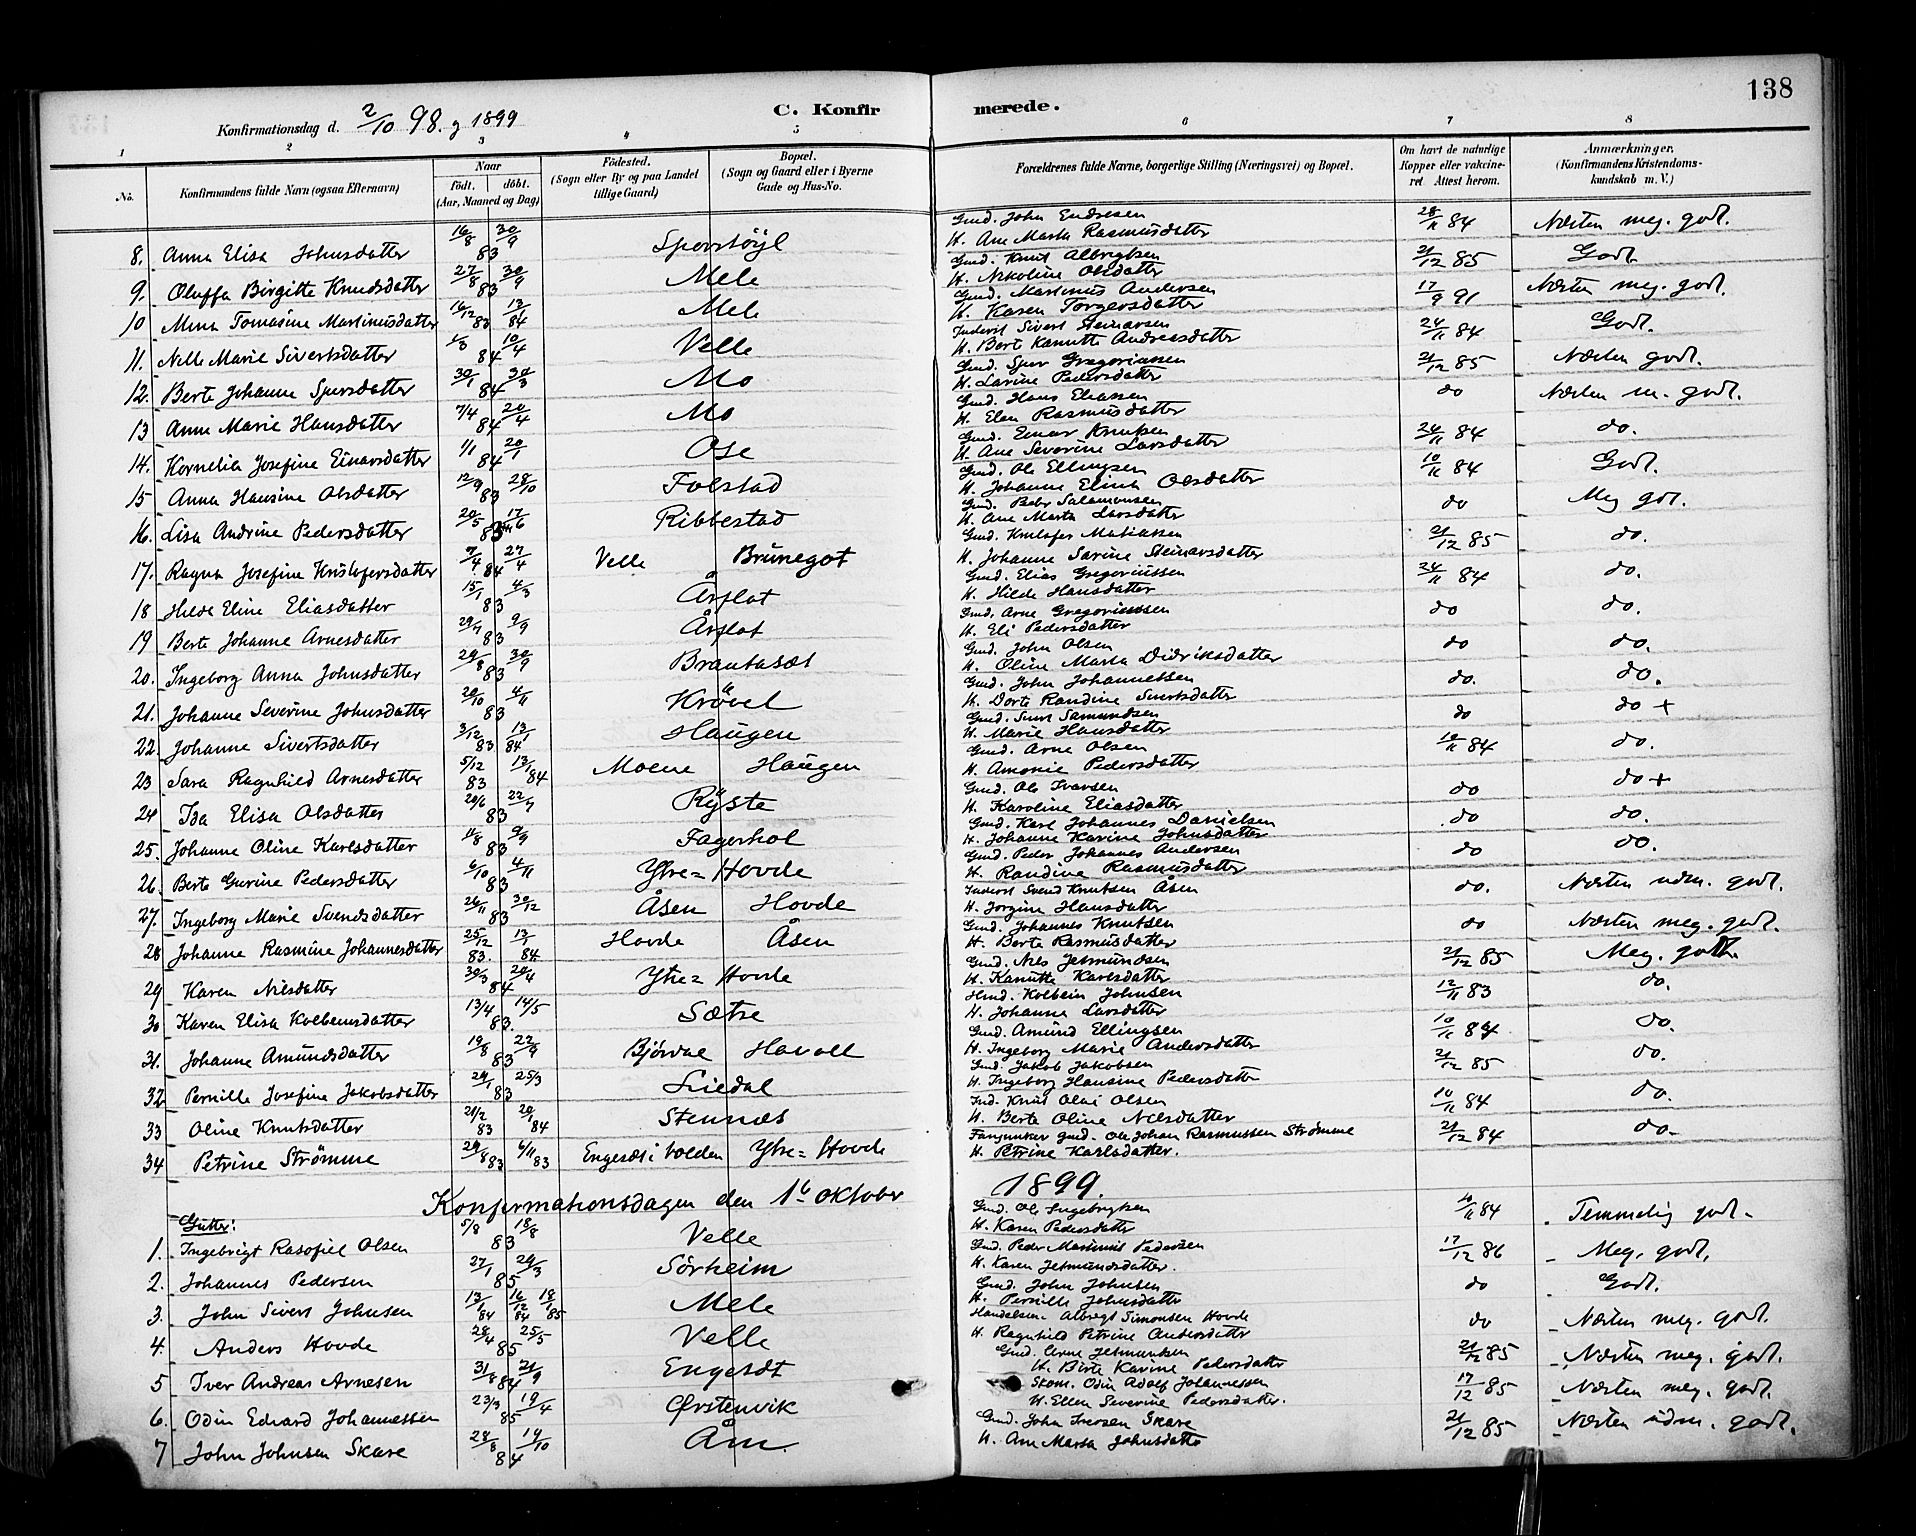 138
Konfirmationsdag d. 2/10 98. og 1899
C. Konfirmerede.
1 2 3 4 5 6 7 8
No.
Konfirmandens fulde Navn (ogsaa Efternavn)
Naar født. døbt. (Aar, Maaned og Dag)
Fødested. (Sogn eller By og paa Landet tillige Gaard)
Bopæl. (Sogn og Gaard eller i Byerne Gade og Hus-No.
Forældrenes fulde Navne, borgerlige Stilling (Næringsvei) og Bopæl.
Om havt de naturlige Kopper eller vakcineret. Attest herom.
Anmærkninger. (Konfirmandens Kristendomskundskab m. V.)
8. Anna Elisa Johnsdatter 16/8 83 30/9 Sporstøyl Gmd. John Endresen H. Ane Marta Rasmusdatter 28/11 84 Næsten meg. godt.
9. Oluffa Birgitte Knudsdatter 27/8 83 30/9 Mele Gmd. Knut Albrigtsen H. Nikoline Olsdatter 21/12 85 Godt.
10 Mina Tomasine Martinusdatter 16/12 83 13/1 84 Mele Gmd. Martinus Andersen H. Karen Torgersdatter 17/9 91 Næsten meg. godt.
11. Nelle Marie Sivertsdatter 1/3 84 10/4 Velle Inderst Sivert Steinarsen H. Bert Kanutte Andreasdatter 24/11 84 Godt.
12. Berte Johanne Spersdatter 30/1 84 30/3 Mo Gmd. Sper Gregoriussen H. Larine Pedersdatter 21/12 85 Næsten godt.
13 Anne Marie Hansdatter 7/4 84 20/4 Mo Gmd. Hans Eliassen H. Elen Rasmusdatter do Næsten m. godt.
14. Kornelia Josefine Einarsdatter 1/1 84 20/1 Ose Gmd. Einar Knutsen H. Ane Severine Larsdatter 24/11 84 do.
15 Anna Hansine Olsdatter 12/9 83 28/10 Folstad Gmd. Ole Ellingsen H. Johanne Elina Olsdatter 10/11 84 Godt.
16. Lisa Andrine Pedersdatter 20/5 83 17/6 Ribbestad Gmd. Peder Salamonsen H. Ane Marta Larsdatter do Meg got.
17. Ragna Josefine Kristofersdatter 7/4 84 27/4 Velle Brunegot Gmd. Kristofer Matiassen H. Johanne Sarine Steinarsdatter 21/12 85 do.
18 Hilde Eline Eliasdatter 15/1 83 4/3 Årflot Gmd. Elias Gregoriussen H. Hilde Hansdatter 24/11 84 do.
19 Berte Johanne Arnesdatter 29/7 83 9/9 Årflot Gmd. Arne Gregoriussen H. Eli Pedersdatter do do.
20. Ingeborg Anna Johnsdatter 29/8 83 30/9 Brautasæt Gmd. John Olsen H. Oline Marta Didriksdatter do do.
21. Johanne Severine Johnsdatter 20/10 83 4/11 Krøvel Gmd. John Johannessen H. Dorte Randine Sivertsdatter do. do.
22. Johanne Sivertsdatter 3/12 83 13/1 84 Haugen Gmd. Sivert Samundsen H. Marie Hansdatter do do +
23 Sara Ragnhild Arnesdatter 5/12 83 13/1 84 Moene Haugen Gmd. Arne Olsen H. Amonie Pedersdatter 10/11 84 do.
24 Ida Elisa Olsdatter 20/6 83 22/7 Ryste Gmd. Ole Ivarsen H. Karoline Eliasdatter do do +
25. Johanne Oline Karlsdatter 11/8 83 9/9 Fagerhol Gmd. Karl Johannes Danielsen H. Johanne Karine Johnsdatter do do.
26. Berte Gurine Pedersdatter 6/10 83 4/11 Ytre=Hovde Gmd. Peder Johannes Andersen H. Randine Rasmusdatter do do.
27. Ingeborg Marie Svendsdatter 26/11 83 30/12 Åsen Hovde Inderst Svend Knutsen Åsen H. Jorgine Hansdatter do. Næsten udm. godt.
28 Johanne Rasmine Johannesdatter 25/12 83. 13/1 84. Hovde Åsen Gmd. Johannes Knutsen H. Berte Rasmusdatter do Næsten meg. godt.
29 Karen Nilsdatter 30/3 84 20/4 Ytre=Hovde Gmd. Nils Jetmundsen H. Kanutte Karlsdatter 21/12 85 Meg. godt.
30 Karen Elisa Kolbeinsdatter 13/4 83. 14/5 Sætre Hmd. Kolbein Johnsen H. Johanne Larsdatter 12/11 83 do.
31. Johanne Amundsdatter 19/8 83 22/9 Bjørdal Havoll Gmd. Amund Ellingsen H. Ingeborg Marie Andersdatter 10/11 84 do.
32 Pernille Josefine Jakobsdatter 29/1 83 25/3 Liedal Gmd. Jakob Jakobsen H. Ingeborg Hansine Pedersdatter 21/12 85 do.
33 Oline Knutsdatter 21/2 83 20/1 84 Stennæs Ind. Knut Olai Olsen H. Berte Oline Nilsdatter 10/11 84 do.
34 Petrine Strømme 29/8 83 6/11 83 Engesæt i Volden Ytre=Hovde Fanjunker gmd. Ole Johan Rasmussen Strømme H. Petrine Karlsdatter. 21/12 84 do.
Konfirmationsdagen den 1e oktober 1899.
Gutter:
1. Ingebrigt Rasofiel Olsen 5/8 83 18/8 Velle Gmd. Ole Ingebrigtsen H. Karen Pedersdatter 10/11 84 Temmelig godt.
2. Johannes Pedersen 27/1 85 29/3 Sørheim Gmd. Peder Martinus Pedersen H. Karen Jetmundsdatter. 17/12 86 Meg. godt.
3. John Sivert Johnsen 13/1 84 16/12 84 18/1 85 Mele Gmd. John Johnsen H. Pernille Johnsdatter do Godt.
4. Anders Hovde 28/4 85 25/5 Velle Handelsm. Albrigt Simonsen Hovde H. Ragnhild Petrine Andersdatter do Næsten meg. godt.
5 Iver Andreas Arnesen 31/8 84 21/9 Engesæt Gmd. Arne Jetmundsen H. Birte Karine Pedersdatter 21/12 85 Næsten meg. godt.
6. Odin Edvard Johannessen 23/3 85 19/4 Ørstenvik Skom. Odin Adolf Johannessen H. Ellen Severine Pedersdatter. 17/12 85 Næsten meg. godt.
7 John Johnsen Skare 28/8 84 19/10 Åm Gmd. John Iversen Skare H. Ane Marta Johnsdatter 21/12 85 Næsten udm. godt.